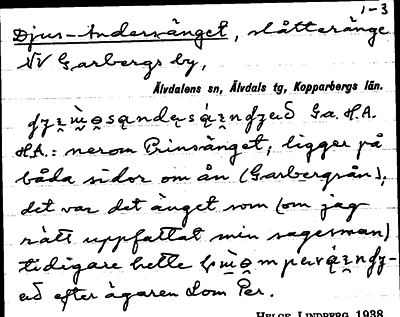 1-3
Djus-Andersänget, slåtteränge
NV Garbergs by,
Älvdalens sn, Älvdals tg, Kopparbergs län.
Ga. H.A.
H.A.: nerom Prinsänget, ligger på
båda sidor om ån (Garbergsån),
det var det änget som (om jag
rätt uppfattat min sagesman)
tidigare hette
efter ägaren Lom Per.
HELGE LINDBERG 1938